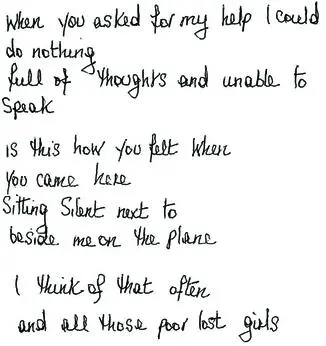 When you asked for my help I could
do nothing
full of thoughts and unable to
Speak
is this how you felt when
you came here
Sitting Silent next to
beside me on the plane
I think of that often
and all those poor lost girls